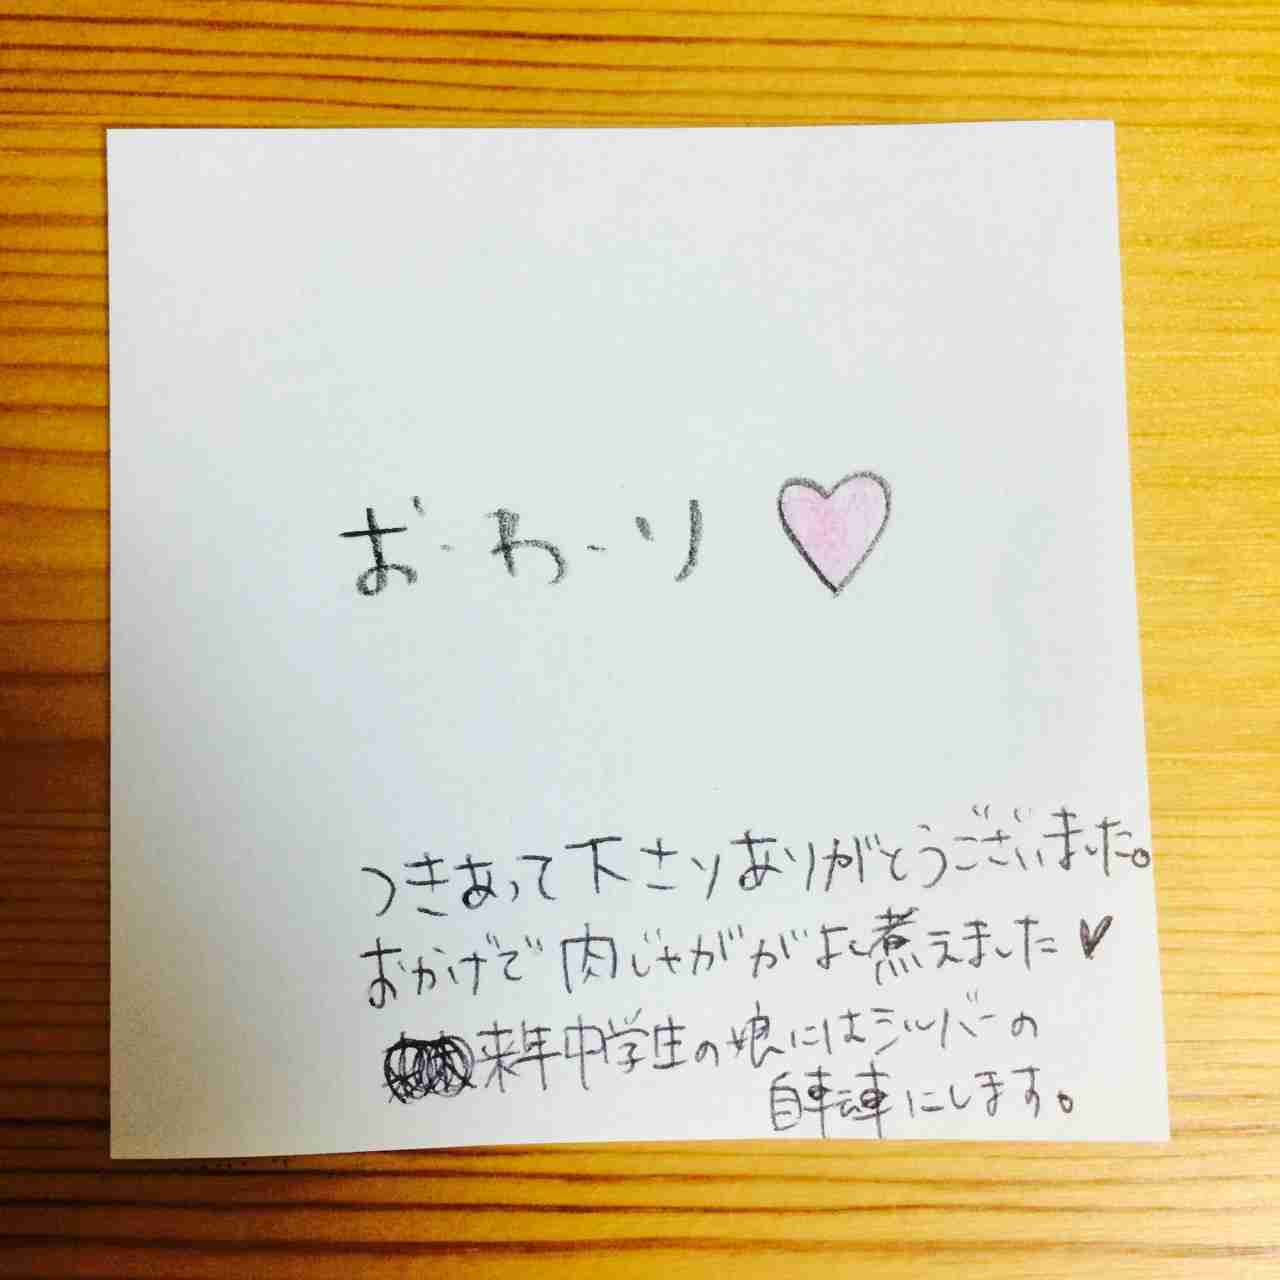 お・わ・り
つきあって下さりありがとうございました。
おかげで肉じゃががよく煮えました♥
来年中学生の娘にはシルバーの
自転車にします。